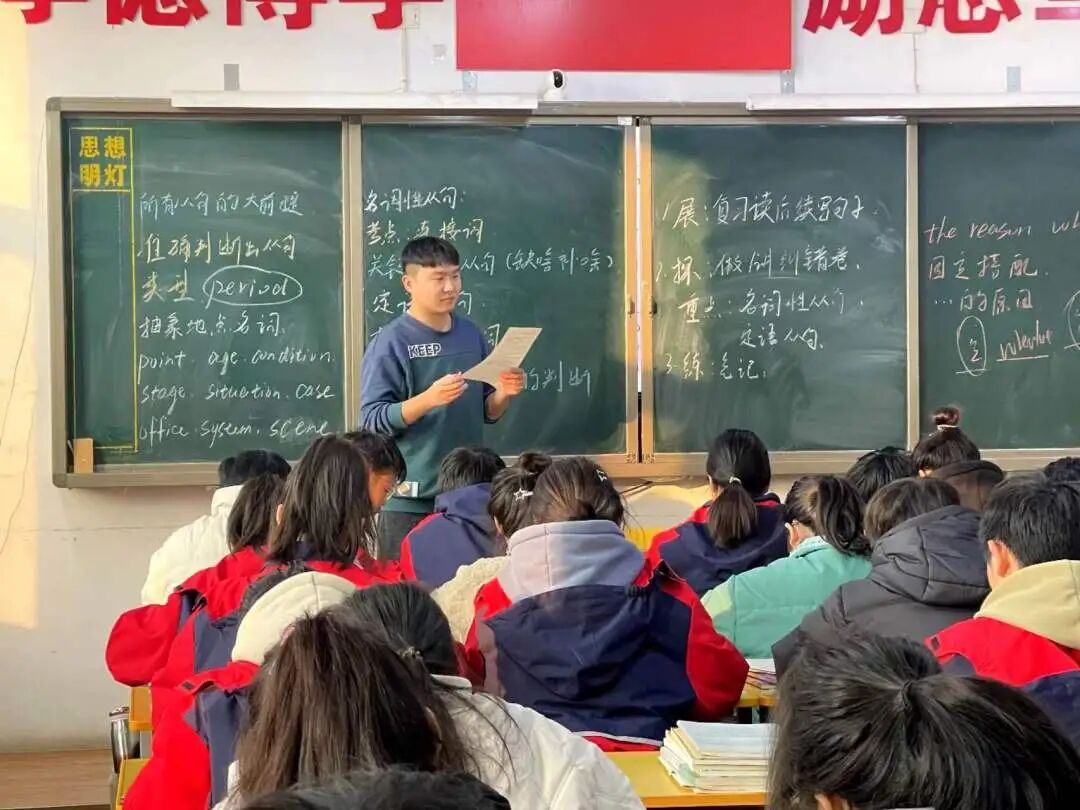 思想
明灯
所有从句的大前提
准确判断出从句
类型 period
抽象地点名词:
point . age . condition .
stage . situation . case
office . system . scene
名词性从句:
考点: 连接词
从句(缺啥补啥)
定 从句
的判断
KEEP
1. 展: 复习读后续写句子.
2. 探: 做例纠错卷
重点: 名词性从句,
定语从句.
3. 练: 笔记.
the reason
固定搭配.
...的原因